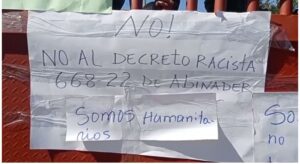 NO!
NO AL DECRETO RACISTA
668-22 DE ABINADER
Somos Humanita
rios
So
no